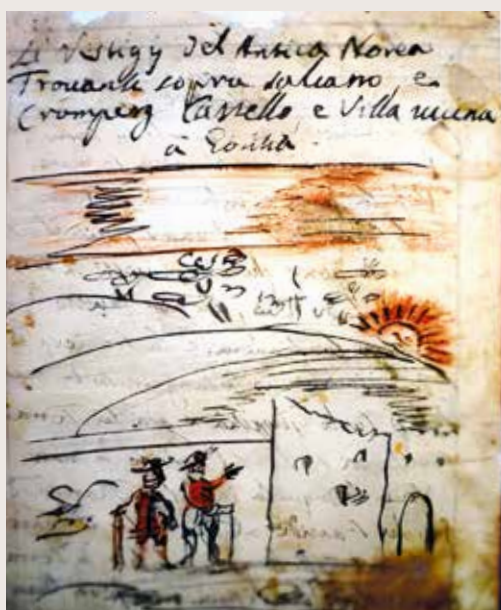 Li Vestigij Del Antica Norea
Trouansi sopra salcano, e
Cromperg Castello e Villa uicina
à Goritia.